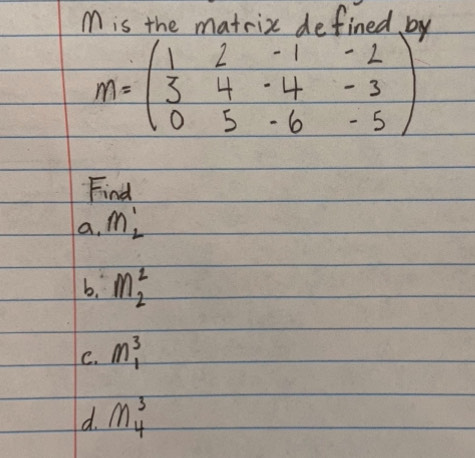 M is the matrix defined by
m= (1 2 -1 -2
3 4 -4 -3
0 5 -6 -5)
Find
a. m¹₂
b. m²₂
c. m³₁
d. m³₄